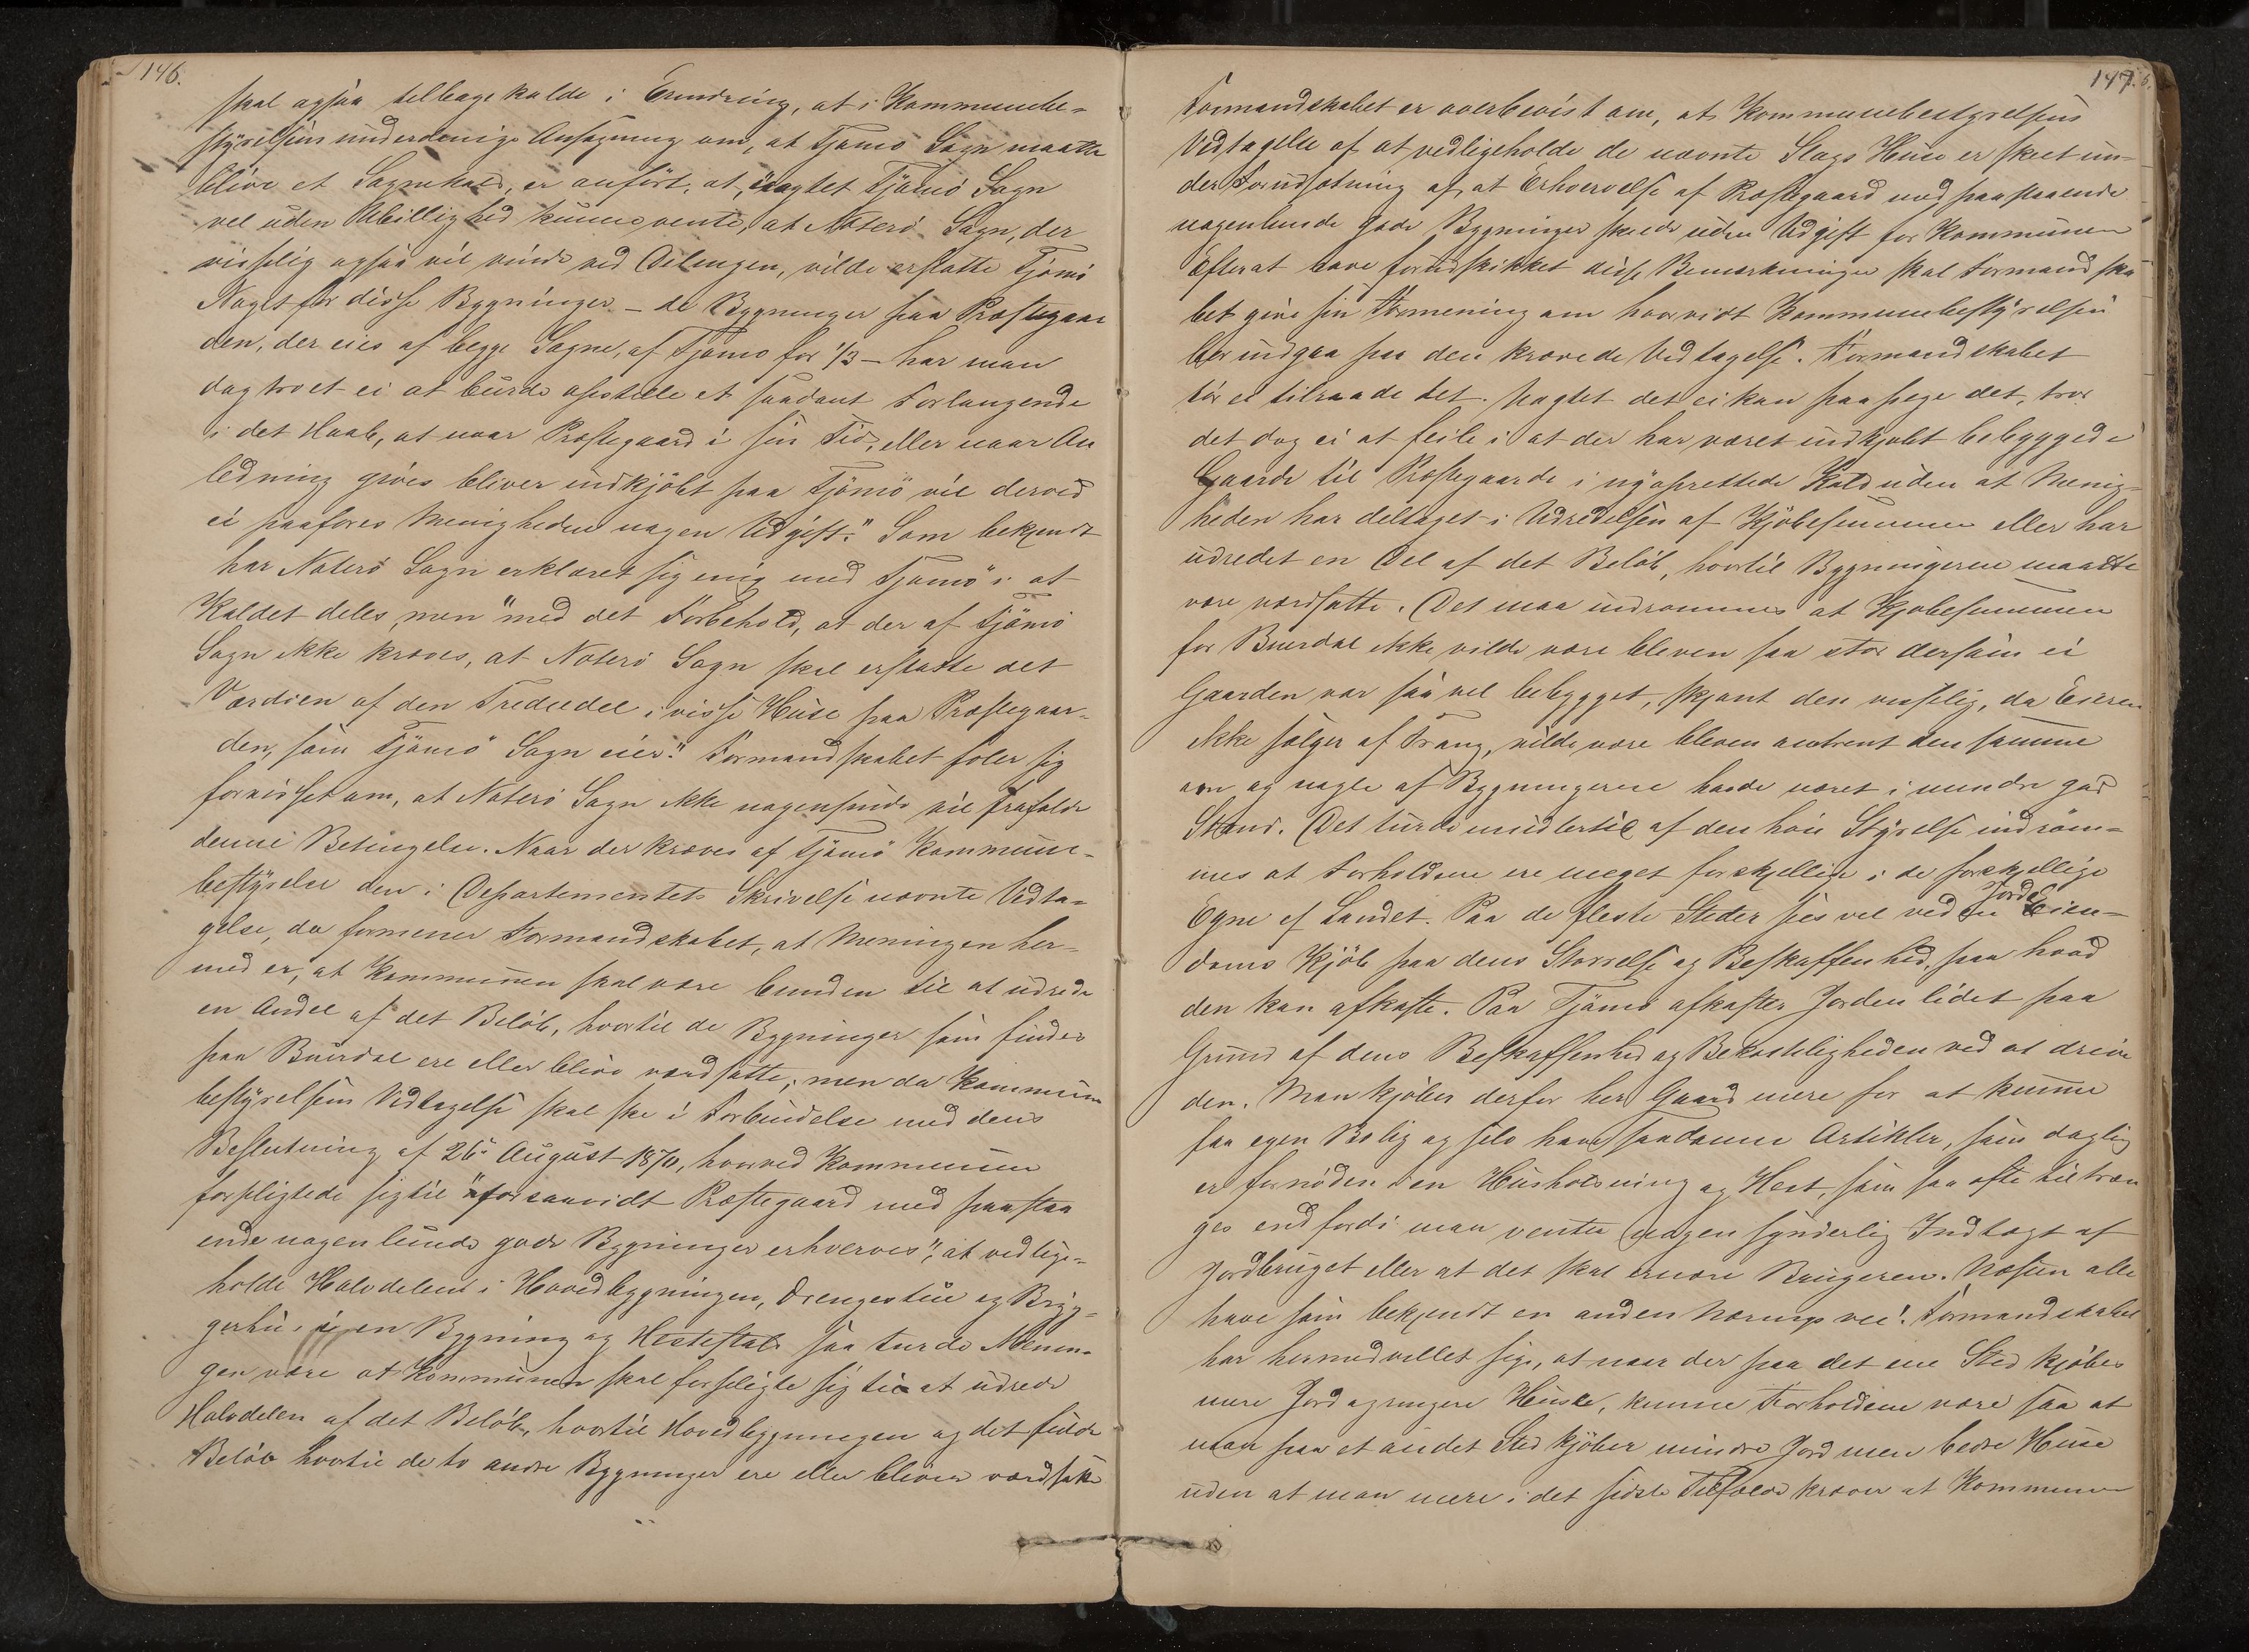 146.
skal ogsaa tilbagekalde i Erindring, at i Kommunebe-
styrelsens underdanige Ansøgning om, at Tjømø Sogn maatte
blive et Sognekald, er anført, at, "uagtet Tjømø Sogn
vel uden Ubillighed kunne vente, at Nøterø Sogn, der
visselig ogsaa vil vinde ved Delingen, vilde erstatte Tjømø
Noget for disse Bygninger – de Bygninger paa Præstegaar
den, der eies af begge Sogne, af Tjømø for 1/3 – har man
dog troet ei at burde opstille et saadant Forlangende
i det Haab, at naar Præstegaard i sin Tid, eller naar An
ledning gives bliver indkjøbt paa Tjømø vil derved
ei paaføres Menigheden nogen Udgift." Som bekjendt
har Nøterø Sogn erklæret sig enig med Tjømø i at
Kaldet deles, men "med det Forbehold, at der af Tjømø
Sogn ikke kræves, at Nøterø Sogn skal erstatte det
Værdien af den Trediedel i visse Huse paa Præstegaar-
den, som Tjømø Sogn eier." Formandskabet føler sig
forvisset om, at Nøterø Sogn ikke nogensinde vil frafalde
denne Betingelse. Naar der kræves af Tjømø Kommune-
bestyrelse den i Departementets Skrivelse nævnte Vedta-
gelse, da formener Formandskabet, at Meningen her-
med er, at Kommunen skal være bunden til at udrede
en Andel af det Beløb, hvortil de Bygninger som findes
paa Buerdal ere eller blive værdsatte; men da Kommune
bestyrelsens Vedtagelse skal ske i Forbindelse med dens
Beslutning af 26de August 1870, hvorved Kommunen
forpligtede sig til "forsaavidt Præstegaard med paastaa
ende nogenlunde gode Bygninger erhverves", at vedlige-
holde Halvdelen i Hovedbygningen, Drengestue og Bryg-
gerhus i en Bygning og Hestestald saa turde Menin-
gen være at Kommunen skal forpligte sig til at udrede
Halvdelen af det Beløb, hvortil Hovedbygningen og det fulde
Beløb hvortil de to andre Bygninger ere eller bliver værdsatte
147.
Formandskabet er overbevist om, at Kommunebestyrelsens
Vedtagelse af at vedligeholde de nævnte Slags Huse er skeet un-
der Forudsætning af, at Erhvervelse af Præstegaard med paastaaende
nogenlunde gode Bygninger skede uden Udgift for Kommunen
Efterat have forudskikket disse Bemærkninger skal Formandska
bet give sin Formening om hvorvidt Kommunebestyrelsen
bør indgaa paa den krævede Vedtagelse. Formandskabet
tør ei tilraade det. Uagtet det ei kan paapege det, tror
det dog ei at feile i at der har været indkjøbt bebyggede
Gaarde til Præstegaarde i nyoprettede Kald uden at Menig-
heden har deltaget i Udredelsen af Kjøbesummen eller har
udredet en Del af det Beløb, hvortil Bygningerne maatte
være værdsatte. Det maa indrømmes at Kjøbesummen
for Buerdal ikke vilde være bleven saa stor dersom ei
Gaarden var saa vel bebygget, skjønt den visselig, da Eieren
ikke sælger af Trang, vilde være bleven omtrent den samme
om og nogle af Bygningerne havde været i mindre god
Stand. Det turde imidlertid af den høie Styrelse indrøm-
mes at Forholdene ere meget forskjellige i de forskjellige
Egne af Landet. Paa de fleste Steder sees vel ved en Jord Eien-
doms Kjøb paa dens Størrelse og Beskaffenhed, paa hvad
den kan afkaste. Paa Tjømø afkaster Jorden lidet paa
Grund af dens Beskaffenhed og Bekosteligheden ved at drive
den. Man kjøber derfor her Gaard mere for at kunne
faa egen Bolig og selv have saadanne Artikler, som daglig
er fornøden i en Husholdning og Hest, som saa ofte tiltræn
ges end fordi man venter nogen synderlig Indtægt af
Jordbruget eller at det skal ernære Brugeren. Næsten alle
have som bekjendt en anden Næringsvei. Formandskabet
har hermed villet sige, at naar der paa det ene Sted kjøbes
mere Jord og ringere Huse, kunne Forholdene være saa at
man paa et andet Sted kjøber mindre Jord men bedre Huse
uden at man mere i det sidste Tilfælde kræver at Kommunen